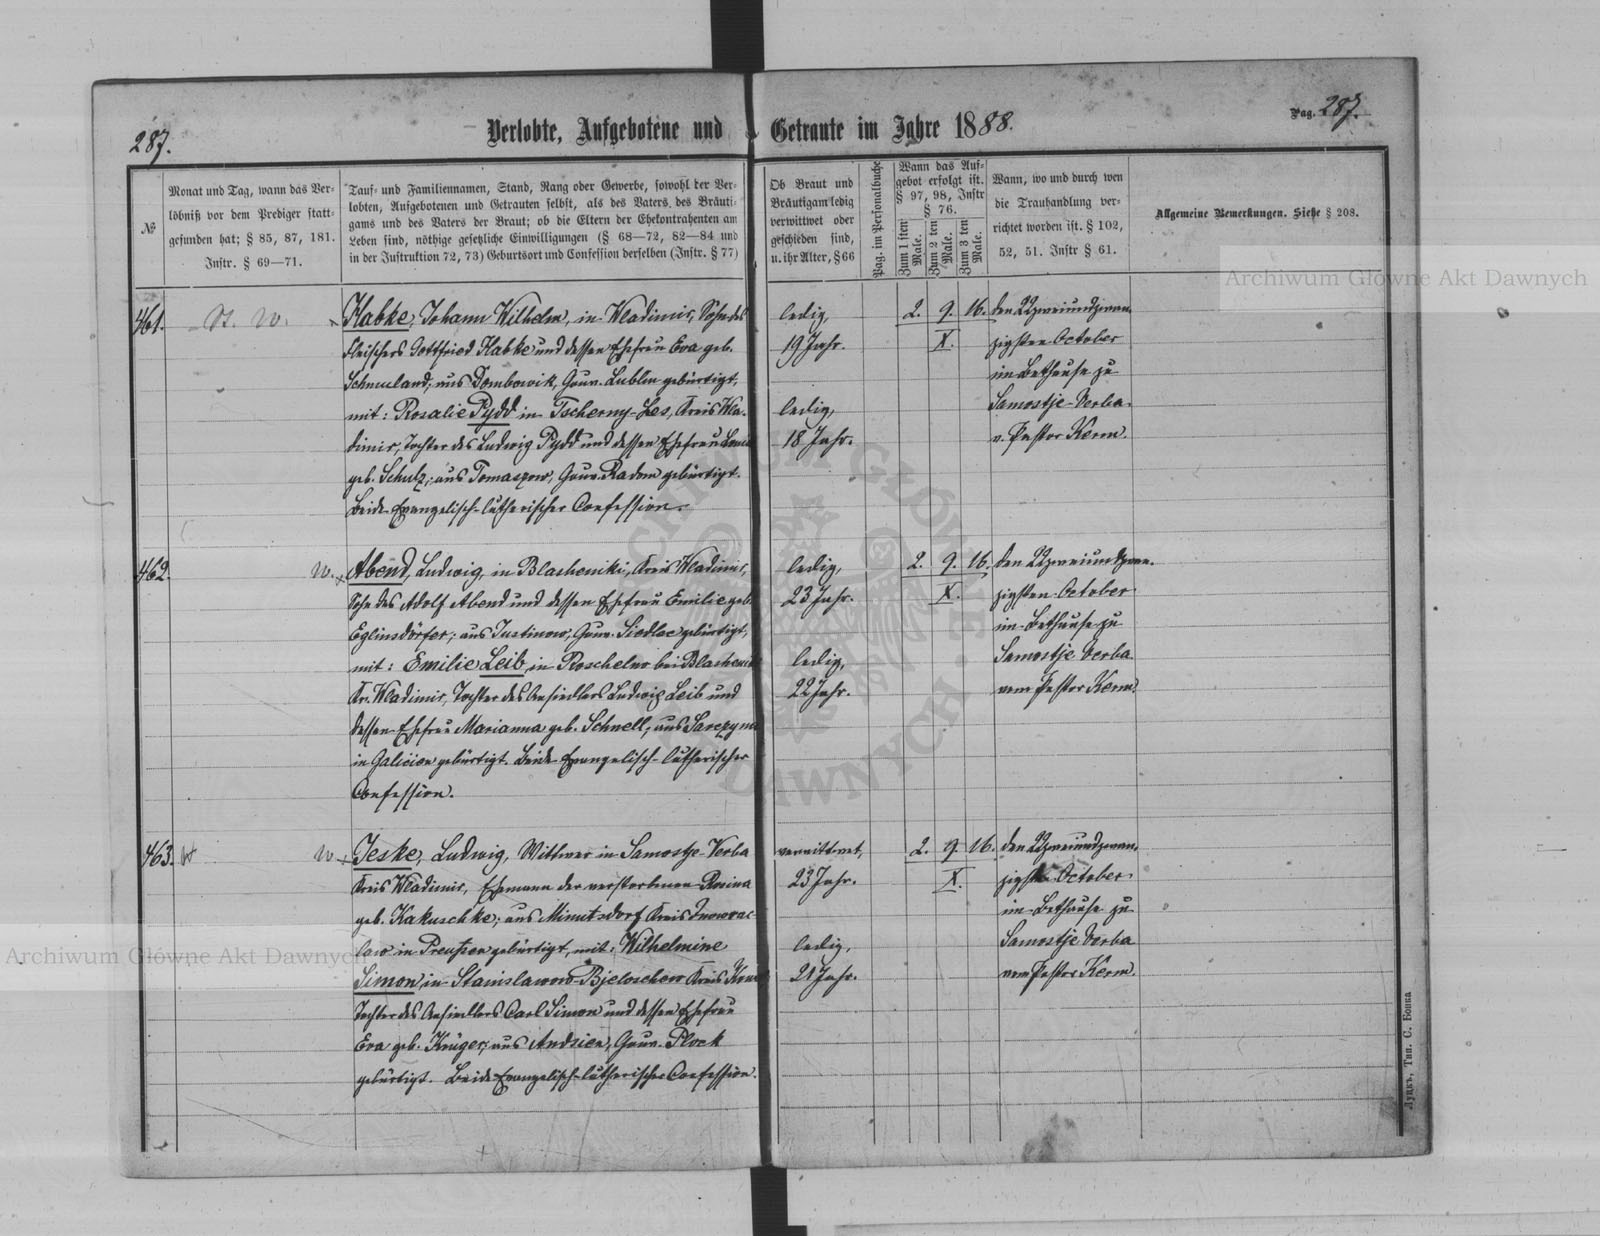 287.
Verlobte, Aufgebotene und Getraute im Jahre 1888.
Pag. 287.
№
Monat und Tag, wann das Ver-
löbniß vor dem Prediger statt-
gefunden hat; § 85, 87, 181.
Instr. § 69—71.
Tauf- und Familiennamen, Stand, Rang oder Gewerbe, sowohl der Ver-
lobten, Aufgebotenen und Getrauten selbst, als des Vaters des Bräuti-
gams und des Vaters der Braut; ob die Eltern der Ehekontrahenten am
Leben sind, nöthige gesetzliche Einwilligungen (§ 68—72, 82—84 und
in der Instruktion 72, 73) Geburtsort und Confession derselben (Instr. § 77)
Ob Braut und
Bräutigam ledig
verwittwet oder
geschieden sind,
u. ihr Alter, § 66
Pag. im Personalbuche
Wann das Auf-
gebot erfolgt ist.
§ 97, 98, Instr
§ 76.
Zum 1 sten
Male.
Zum 2 ten
Male.
Zum 3 ten
Male.
Wann, wo und durch wen
die Trauhandlung ver-
richtet worden ist. § 102,
52, 51. Instr § 61.
Allgemeine Bemerkungen. Siehe § 208.
461.
W.
Habke, Johann Wilhelm, in Wladimir, Sohn des
Fleischers Gottfried Habke und dessen Ehefrau Eva geb.
Schmuland; aus Dombowik, Gouv. Lublin gebürtigt,
mit: Rosalie Pydd in Tscherny-Les, Kreis Wla-
dimir, Tochter des Ludwig Pydd und dessen Ehefrau
geb. Schulz; aus Tomaszow, Gouv. Radom gebürtigt.
Beide Evangelisch-lutherischer Confession.
ledig,
19 Jahr.
ledig,
18 Jahr.
2. 9. 16.
X.
den 22 zweiundzwan-
zigsten October
im Bethause zu
Samostje-Verba
v. Pastor Kerm.
462.
W.
Abend, Ludwig, in Blasheniki, Kreis Wladimir,
Sohn des Adolf Abend und dessen Ehefrau Emilie geb.
Eglinsdörfer; aus Justinow, Gouv. Siedlec gebürtigt,
mit: Emilie Leib in Roschelno bei
Kr. Wladimir, Tochter des Ansiedlers Ludwig Leib und
dessen Ehefrau Marianna geb. Schnell, aus
in Galicien gebürtigt. Beide Evangelisch-lutherischer
Confession.
ledig,
23 Jahr.
ledig,
22 Jahr.
2. 9. 16.
X.
den 22 zweiundzwan-
zigsten October
im Bethause zu
Samostje Verba
vom Pastor Kerm.
463.
W
Jeske, Ludwig, Wittwer in Samostje-Verba
Kreis Wladimir, Ehemann der verstorbenen Rosina
geb. Kakuschke; aus Minutsdorf Kreis Inowrac-
law in Preußen gebürtigt, mit: Wilhelmine
Simon in Stanislawow-Bjeloschow Kreis
Tochter des Ansiedlers Carl Simon und dessen Ehefrau
Eva geb. Krüger; aus Andzien, Gouv. Plock
gebürtigt. Beide Evangelisch-lutherischer Confession.
verwittwet,
23 Jahr.
ledig,
21 Jahr.
2. 9. 16.
X.
den 22 zweiundzwan-
zigsten October
im Bethause zu
Samostje Verba
vom Pastor Kerm.
Луцкъ, Тип. С. Бонка
Archiwum Główne Akt Dawnych
Archiwum Główne Akt Dawnych